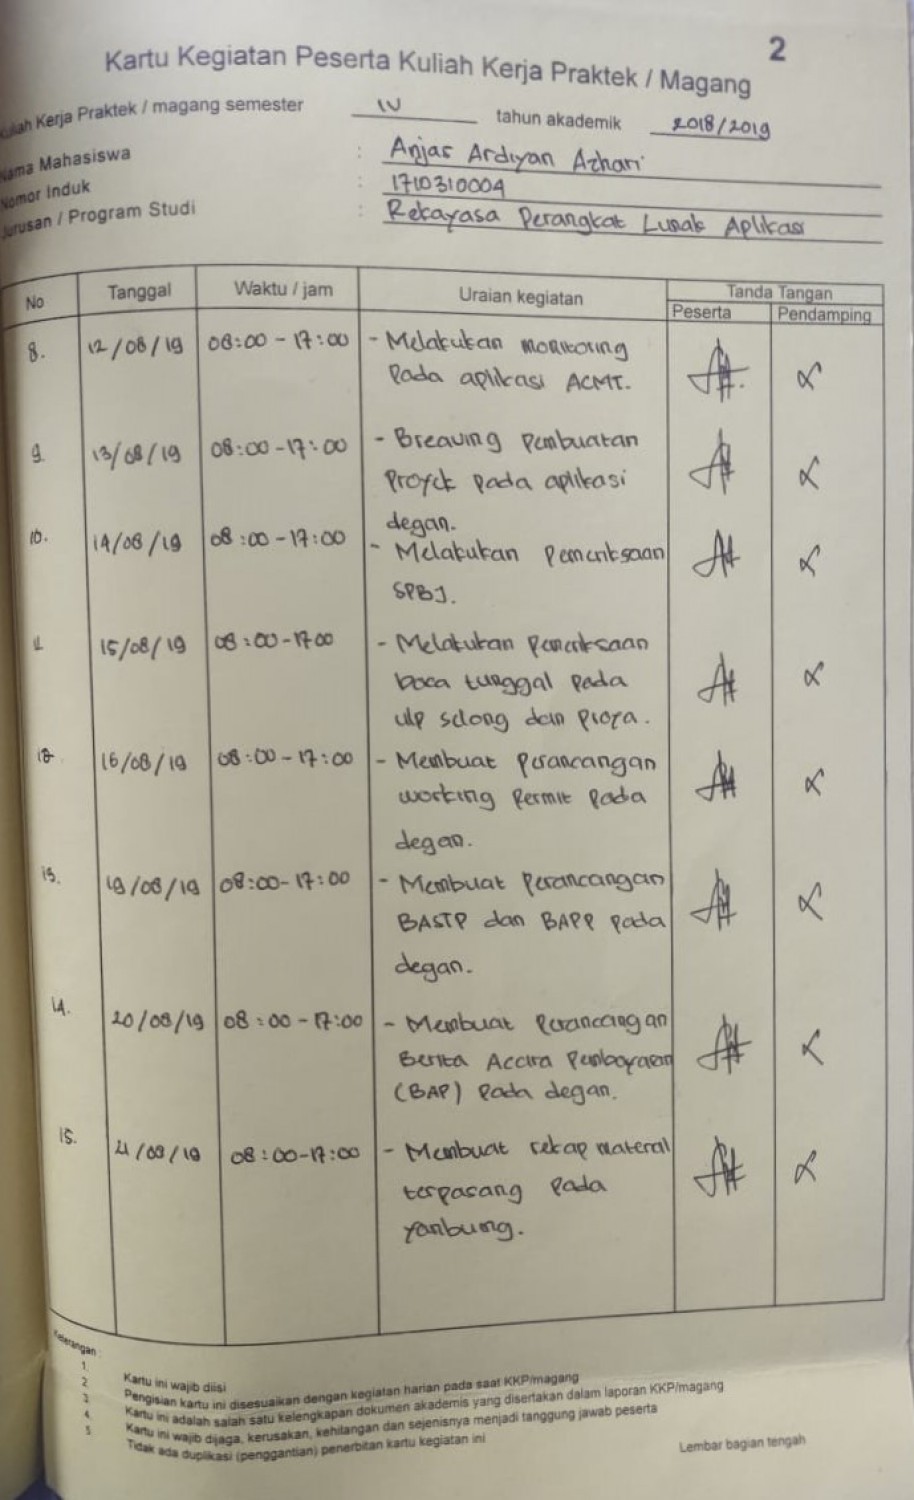 2
Kartu Kegiatan Peserta Kuliah Kerja Praktek / Magang
Kuliah Kerja Praktek / magang semester IV tahun akademik 2018/2019
Nama Mahasiswa : Anjas Ardiyan Azhari
Nomor Induk : 1710310004
Jurusan / Program Studi : Rekayasa Perangkat Lunak Aplikasi
No Tanggal Waktu / jam Uraian kegiatan Tanda Tangan
Peserta Pendamping
8. 12/08/19 08:00 - 17:00 - Melakukan monitoring
pada aplikasi ACMT.
9. 13/08/19 08:00 - 17:00 - Breaving pembuatan
Proyek pada aplikasi
degan.
10. 14/08/19 08:00 - 17:00 - Melakukan pemeriksaan
SPBJ.
11 15/08/19 08:00 - 1700 - Melakukan pemeriksaan
baca tunggal pada
ulp selong dan praya.
12 16/08/19 08:00 - 17:00 - Membuat perancangan
working permit pada
degan.
13. 19/08/19 08:00 - 17:00 - Membuat perancangan
BASTP dan BAPP pada
degan.
14. 20/08/19 08:00 - 17:00 - Membuat perancangan
Berita Accara Pembayaran
(BAP) pada degan.
15. 21/08/19 08:00 - 17:00 - Membuat rekap material
terpasang pada
yanbung.
Keterangan :
1. Kartu ini wajib diisi
2 Pengisian kartu ini disesuaikan dengan kegiatan harian pada saat KKP/magang
3 Kartu ini adalah salah satu kelengkapan dokumen akademis yang disertakan dalam laporan KKP/magang
4. Kartu ini wajib dijaga, kerusakan, kehilangan dan sejenisnya menjadi tanggung jawab peserta
5 Tidak ada duplikasi (penggantian) penerbitan kartu kegiatan ini
Lembar bagian tengah